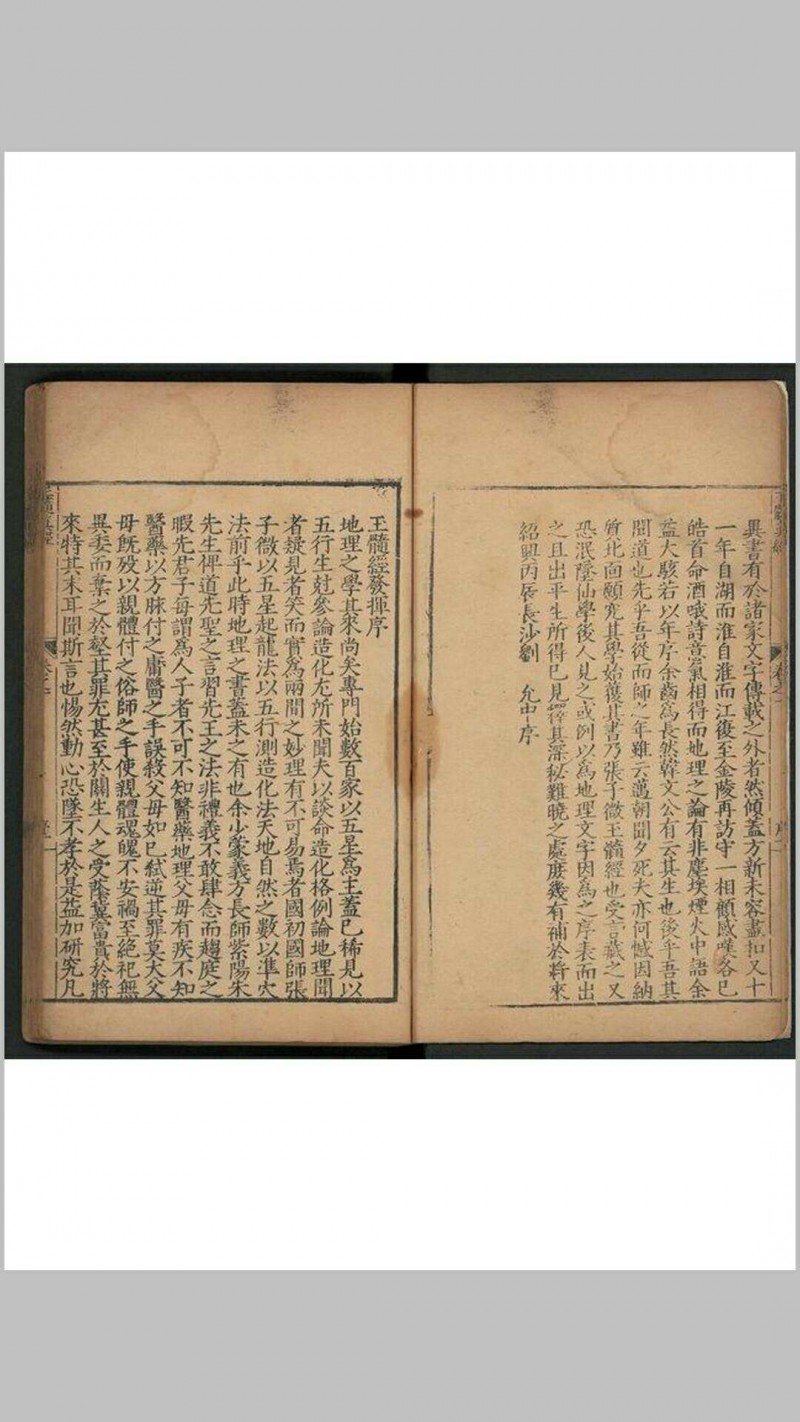 異書有於諸家文字傳載之外者然傾蓋方新未容盡扣又十
一年自湖而淮自淮而江復至金陵再訪守一相顧感嘆各已
皓首命酒哦詩意氣相得而地理之論有非塵埃煙火中語余
益大駭若以年序余齒為長然韓文公有云其生也後乎吾其
聞道也先乎吾從而師之年雖云邁朝聞夕死夫亦何憾因納
質北面願究其學始獲其書乃張子微玉髓經也受言藏之又
恐泯墜仙學後人見之或例以為地理文字因為之序表而出
之且出平生所得已見釋其深秘難曉之處庶幾有補於將來
紹興丙辰長沙劉 允中序
玉髓經發揮序
地理之學其來尚矣專門始數百家以五星為主蓋已稀見以
五行生尅參論造化尤所未聞夫以談命造化格例論地理聞
者疑見者笑而實為兩間之妙理有不可易焉者國初國師張
子微以五星起龍法以五行測造化法天地自然之數以準穴
法前乎此時地理之書蓋未之有也余少蒙義方長師紫陽朱
先生禆道先聖之言習先王之法非禮義不敢肆念而趨庭之
暇先君子每謂為人子者不可不知醫藥地理父母有疾不知
醫藥以方脉付之庸醫之手誤殺父母如已弒逆其罪莫大父
母既歿以親體付之俗師之手使親體魂魄不安禍至絕祀無
異委而棄之於壑其罪尤甚至於關生人之受蔭冀富貴於將
來特其末耳聞斯言也惕然動心恐墜不孝於是益加研究凡